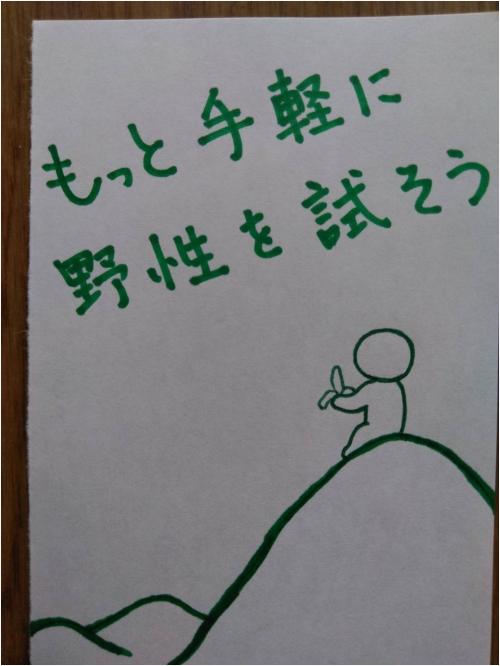 もっと手軽に
野性を試そう